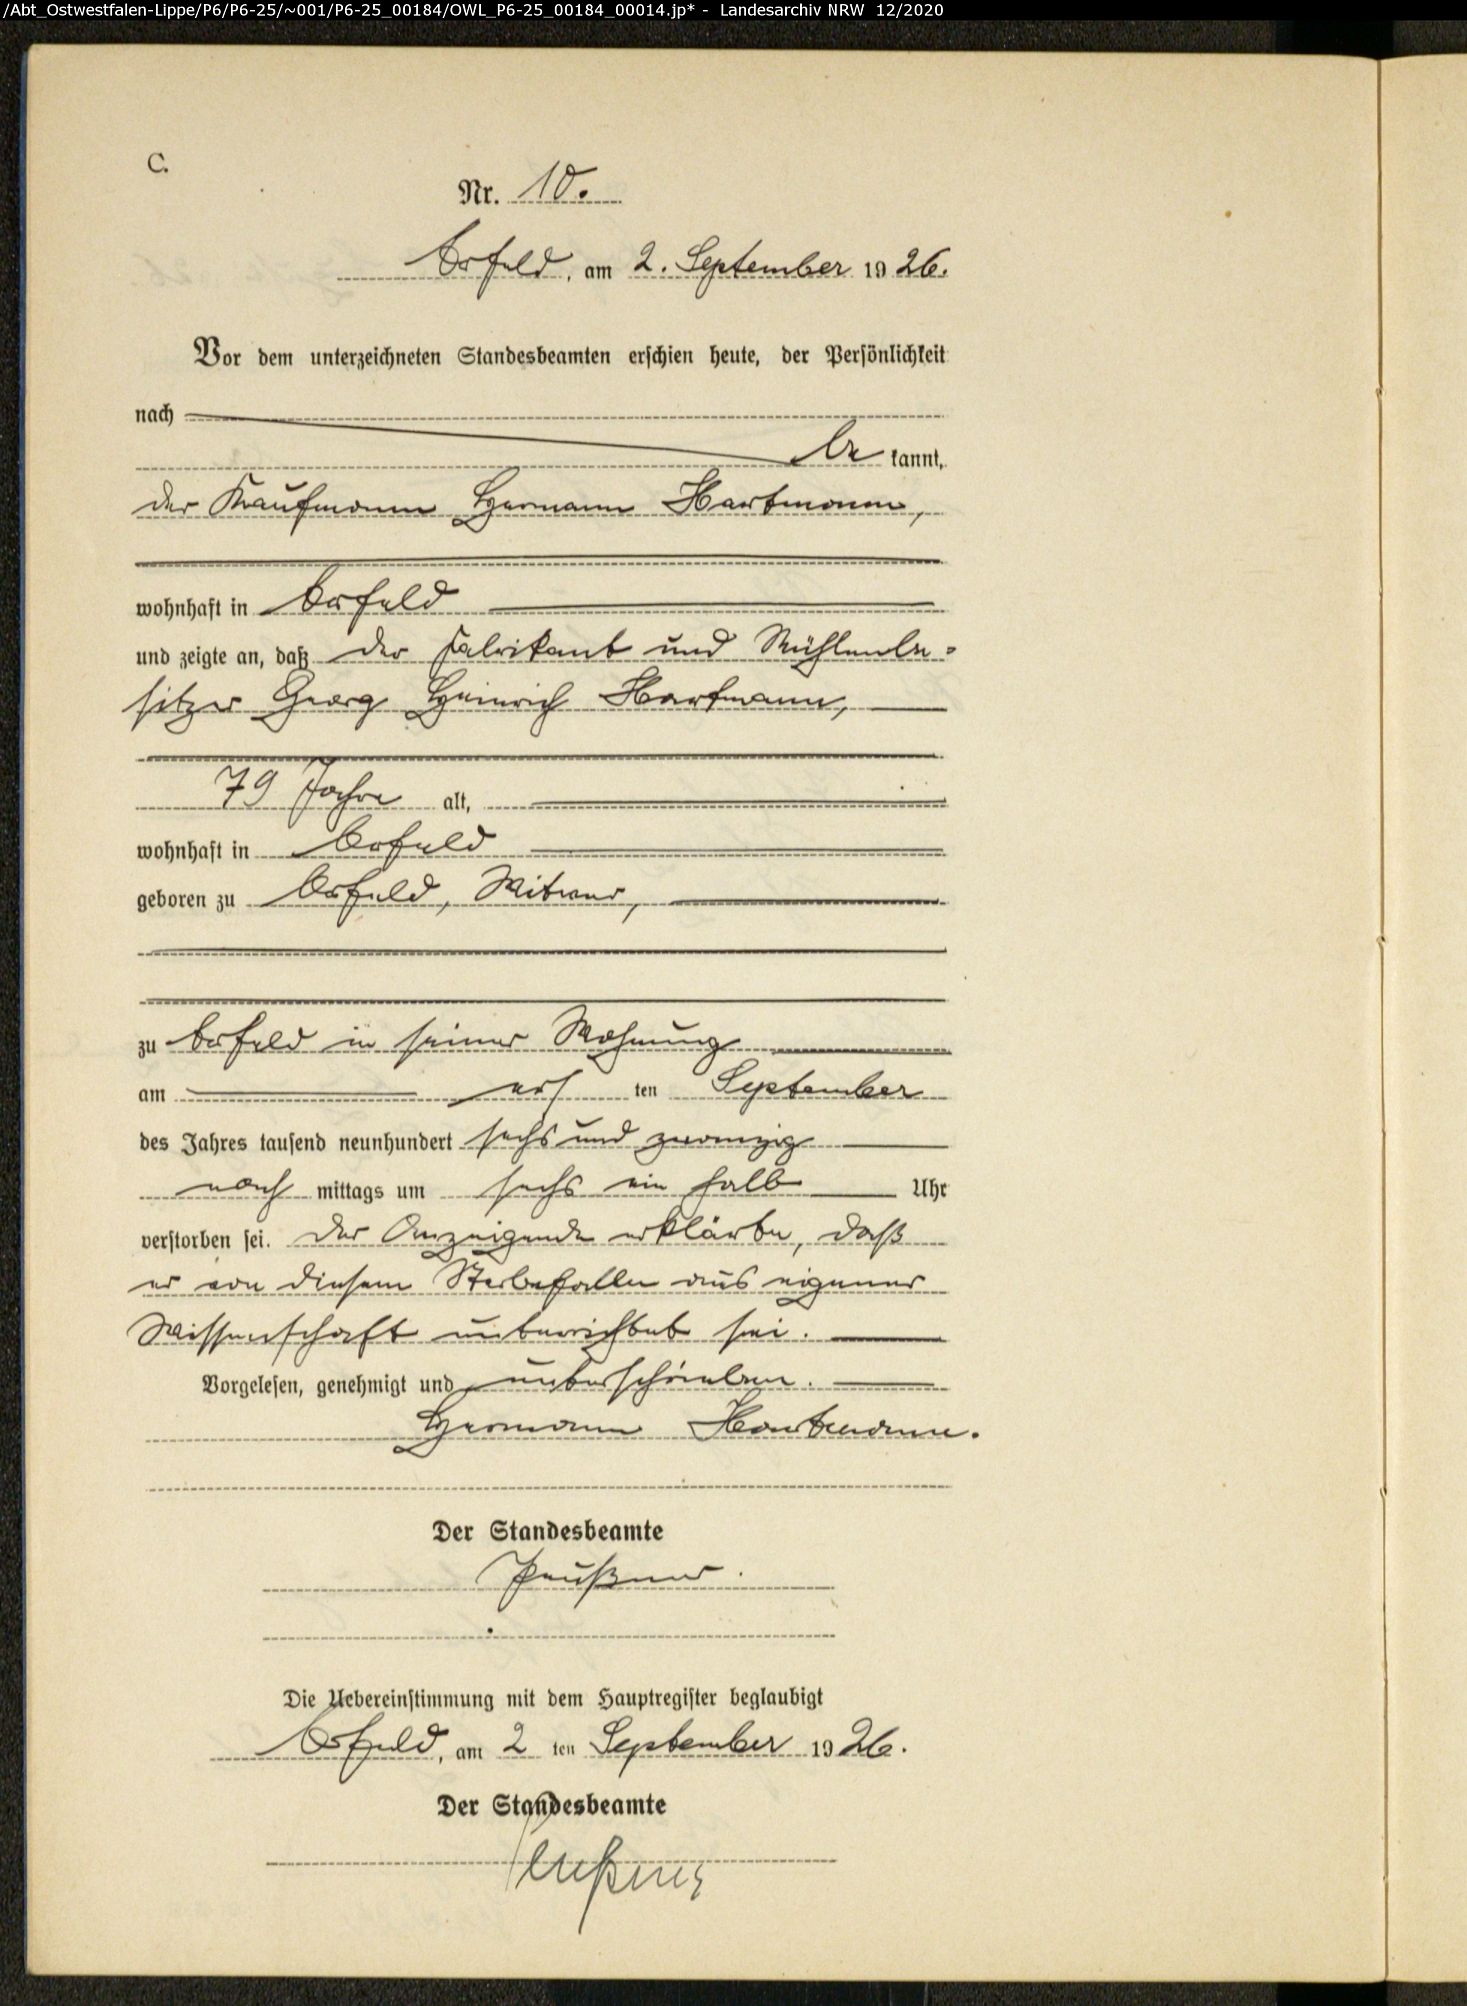 /Abt_Ostwestfalen-Lippe/P6/P6-25/~001/P6-25_00184/OWL_P6-25_00184_00014.jp* - Landesarchiv NRW 12/2020
C.
Nr. 10.
, am 2. September 1926.
Vor dem unterzeichneten Standesbeamten erschien heute, der Persönlichkeit
nach
be kannt,
der Kaufmann Hermann Hartmann,
wohnhaft in
und zeigte an, daß der Fabrikant und Mühlenbe-
sitzer Georg Heinrich Hartmann,
79 Jahre alt,
wohnhaft in
geboren zu , Witwer,
zu in seiner Wohnung
am ers ten September
des Jahres tausend neunhundert sechs und zwanzig
nach mittags um sechs ein halb Uhr
verstorben sei. Der Anzeigende erklärte, daß
er von diesem Sterbefalle aus eigener
Wissenschaft unterrichtet sei.
Vorgelesen, genehmigt und unterschrieben.
Hermann Hartmann.
Der Standesbeamte
Die Uebereinstimmung mit dem Hauptregister beglaubigt
, am 2 ten September 1926.
Der Standesbeamte